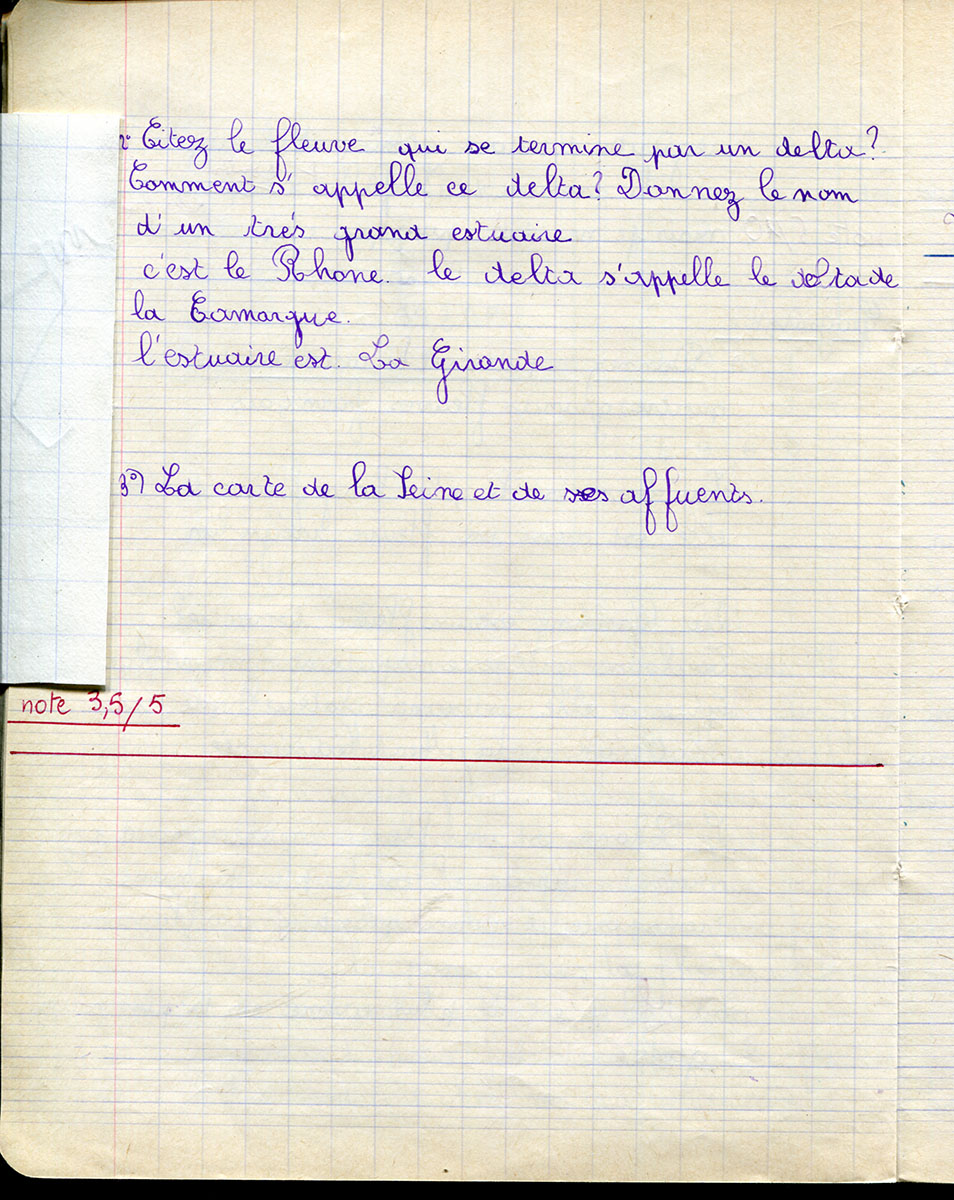 2° Citez le fleuve qui se termine par un delta?
Comment s'appelle ce delta? Donnez le nom
d'un trés grand estuaire
c'est le Rhone. le delta s'appelle le de
la Camargue.
l'estuaire est. La Gironde
3°) La carte de la Seine et de ses affuents.
note 3,5/5